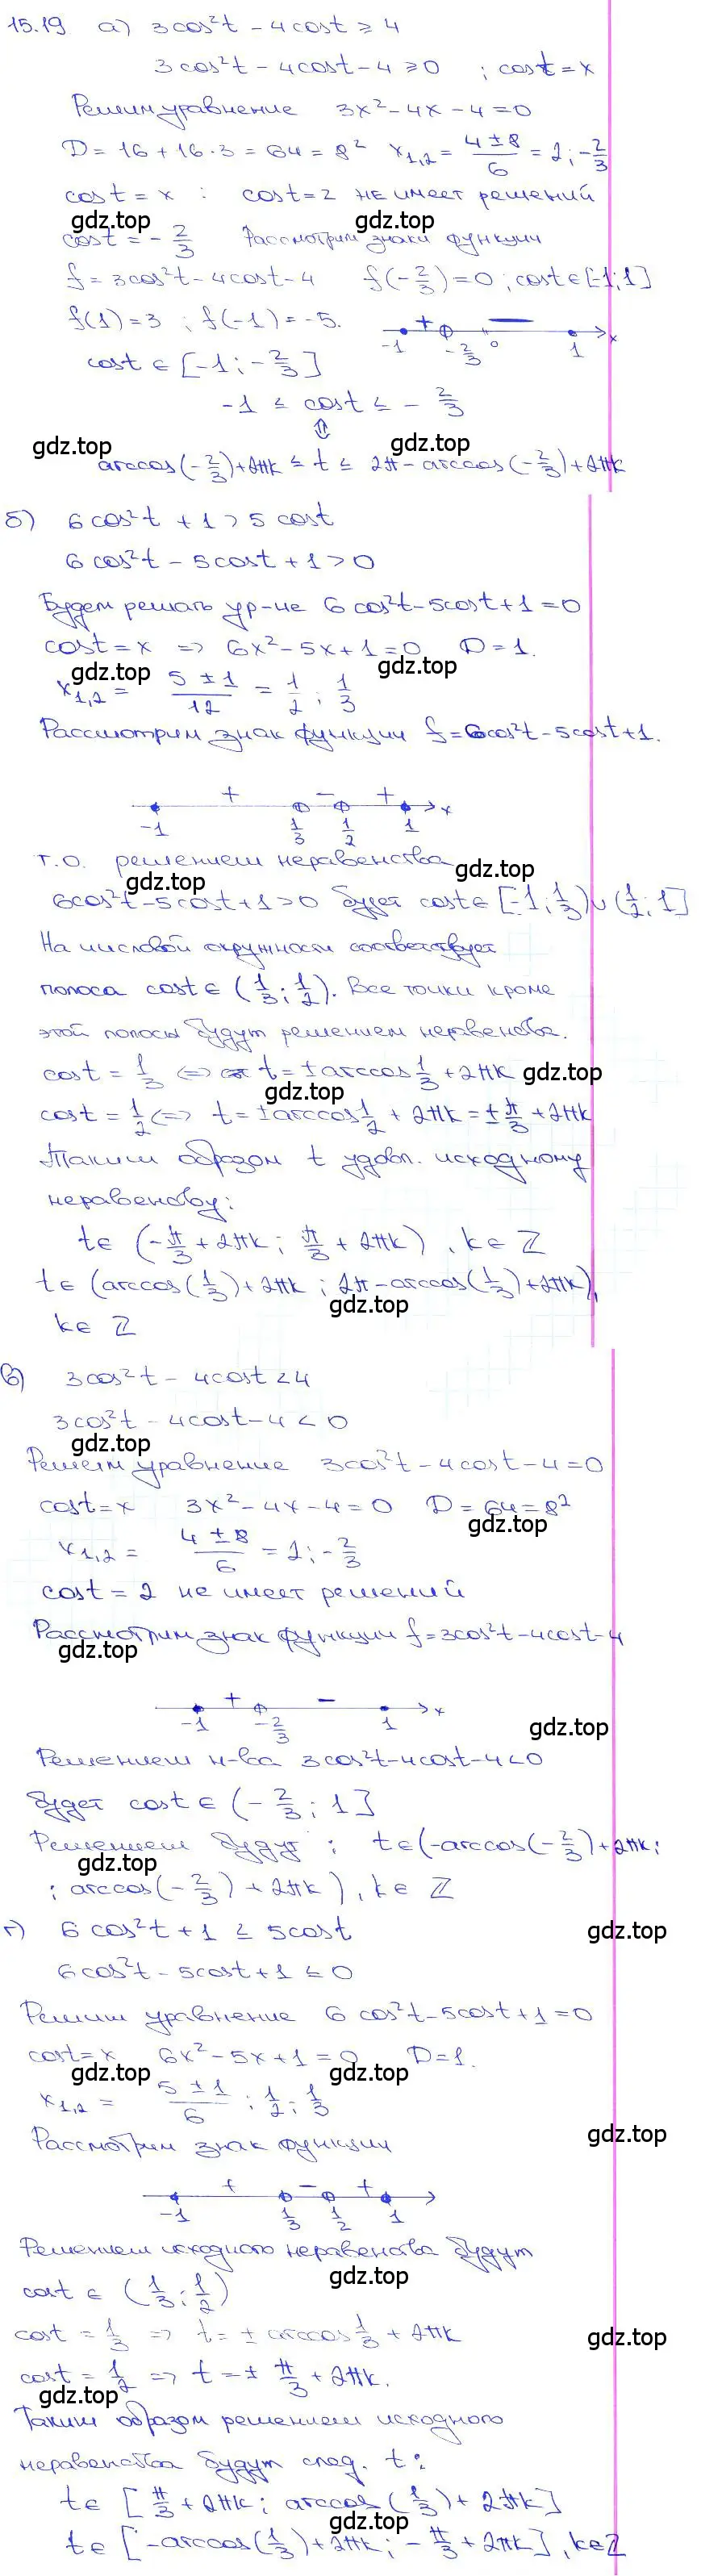 15.19 а) 3cos²t - 4cost ≥ 4
3cos²t - 4cost - 4 ≥ 0 ; cost = x
Решим уравнение 3x² - 4x - 4 = 0
D = 16 + 16·3 = 64 = 8² x₁,₂ = (4 ± 8)/6 = 2; -2/3
cost = x : cost = 2 не имеет решений
gdz.top gdz.top
cost = -2/3 Рассмотрим знаки функции
f = 3cos²t - 4cost - 4 f(-2/3) = 0 ; cost ∈ [-1; 1]
f(1) = 3 ; f(-1) = -5.
+ −
-1 -2/3 0 1 x
cost ∈ [-1; -2/3]
-1 ≤ cost ≤ -2/3
⇕
gdz.top gdz.top
arccos(-2/3) + 2πk ≤ t ≤ 2π - arccos(-2/3) + 2πk
б) 6cos²t + 1 > 5cost
6cos²t - 5cost + 1 > 0
Будем решать ур-ие 6cos²t - 5cost + 1 = 0
cost = x => 6x² - 5x + 1 = 0 D = 1.
gdz.top gdz.top
x₁,₂ = (5 ± 1)/12 = 1/2 ; 1/3
Рассмотрим знак функции f = 6cos²t - 5cost + 1.
+ − +
-1 1/3 1/2 1 x
т.о. решением неравенства
gdz.top gdz.top
6cos²t - 5cost + 1 > 0 будет cost ∈ [-1; 1/3) ∪ (1/2; 1]
На числовой окружности соответствует
полоса cost ∈ (1/3; 1/2). Все точки кроме
этой полосы будут решением неравенства.
cost = 1/3 <=> t = ±arccos 1/3 + 2πk
gdz.top gdz.top
cost = 1/2 <=> t = ±arccos 1/2 + 2πk = ±π/3 + 2πk
Таким образом t удовл. исходному
неравенству:
t ∈ (-π/3 + 2πk ; π/3 + 2πk), k ∈ Z
t ∈ (arccos(1/3) + 2πk ; 2π - arccos(1/3) + 2πk),
gdz.top
k ∈ Z
в) 3cos²t - 4cost < 4
3cos²t - 4cost - 4 < 0
gdz.top
Решим уравнение 3cos²t - 4cost - 4 = 0
cost = x 3x² - 4x - 4 = 0 D = 64 = 8²
gdz.top
x₁,₂ = (4 ± 8)/6 = 2; -2/3
cost = 2 не имеет решений
Рассмотрим знак функции f = 3cos²t - 4cost - 4
gdz.top
+ −
-1 -2/3 1 x
gdz.top
Решением н-ва 3cos²t - 4cost - 4 < 0
будет cost ∈ (-2/3; 1]
Решением будут : t ∈ (-arccos(-2/3) + 2πk;
gdz.top
; arccos(-2/3) + 2πk), k ∈ Z
г) 6cos²t + 1 ≤ 5cost
gdz.top
6cos²t - 5cost + 1 ≤ 0
Решим уравнение 6cos²t - 5cost + 1 = 0
cost = x 6x² - 5x + 1 = 0 D = 1.
gdz.top gdz.top
x₁,₂ = (5 ± 1)/6 ; 1/2 ; 1/3
gdz.top
Рассмотрим знак функции
+ − +
-1 1/3 1/2 1
Решением исходного неравенства будут
gdz.top
cost ∈ (1/3; 1/2)
cost = 1/3 => t = ±arccos 1/3 + 2πk
gdz.top
cost = 1/2 => t = ± π/3 + 2πk.
gdz.top
Таким образом решением исходного
неравенства будут след. t:
t ∈ [π/3 + 2πk ; arccos(1/3) + 2πk]
t ∈ [-arccos(1/3) + 2πk ; -π/3 + 2πk], k ∈ Z